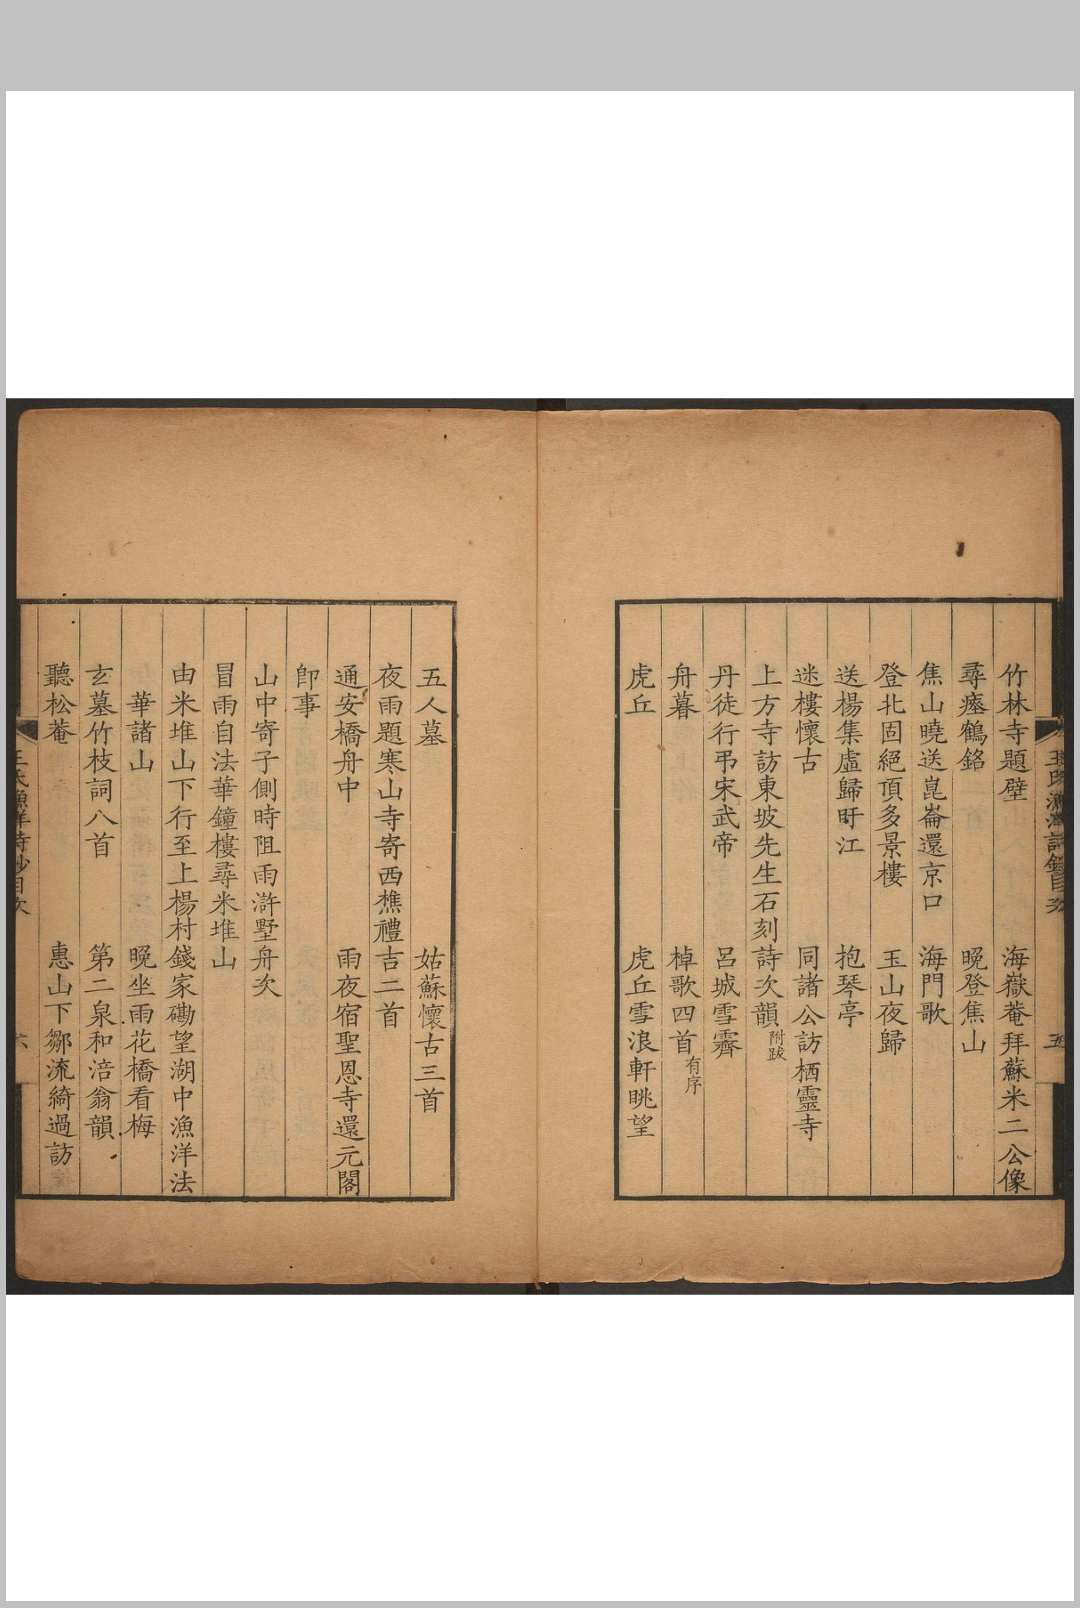 竹林寺題壁 海嶽菴拜蘇米二公像
尋瘞鶴銘 晚登焦山
焦山曉送崑崙還京口 海門歌
登北固絕頂多景樓 玉山夜歸
送楊集虛歸盱江 抱琴亭
迷樓懷古 同諸公訪栖靈寺
上方寺訪東坡先生石刻詩次韻附跋
丹徒行弔宋武帝 呂城雪霽
舟暮 棹歌四首有序
虎丘 虎丘雪浪軒眺望
五人墓 姑蘇懷古三首
夜雨題寒山寺寄西樵禮吉二首
通安橋舟中 雨夜宿聖恩寺還元閣
卽事
山中寄子側時阻雨滸墅舟次
冒雨自法華鐘樓尋米堆山
由米堆山下行至上楊村錢家磡望湖中漁洋法
華諸山 晚坐雨花橋看梅
玄墓竹枝詞八首 第二泉和涪翁韻
聽松菴 惠山下鄒流綺過訪
王氏漁洋詩鈔目次 六